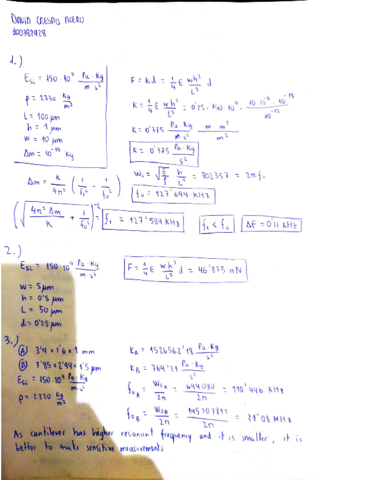 DAVID CRESPO ACERO
100392928
1.)
E_Si = 150·10⁹ Pa·Kg / m·s²
ρ = 2330 Kg/m³
L = 100 μm
h = 1 μm
w = 10 μm
Δm = 10⁻¹⁵ Kg
F = Kd = 1/4 E wh³/L³ d
K = 1/4 E wh³/L³ = 0'25 · 150·10⁹ · 10·10⁻⁶ · 10⁻¹⁸ / 10⁻¹²
K = 0'375 Pa·Kg / m·s² m·m³ / m³
K = 0'375 Pa·Kg / s²
Δm = K/4π² (1/f₁² - 1/f₀²)
W₀ = √(E/ρ) h/L² = 802357 = 2πf₀
f₀ = 127'699 KHz
(√(4π²Δm/K + 1/f₀²))⁻¹ = f₁ = 127'589 KHz
f₁ < f₀
ΔF = 0'11 KHz
2.)
E_Si = 150·10⁹ Pa·Kg / m·s²
F = 1/4 E wh³/L³ d = 46'875 nN
w = 5 μm
h = 0'5 μm
L = 50 μm
d = 0'25 μm
3.)
(A) 3'4 × 1'6 × 1 mm
(B) 7'85 × 2'44 × 1'5 μm
E_Si = 150·10⁹ Pa·Kg / m·s²
ρ = 2330 Kg/m³
K_A = 1526562'18 Pa·Kg / s²
f₀A = W₀A / 2π
f₀B = W₀B / 2π
As cantilever has higher resonant frequency and it is smaller, it is
better to make sensitive measurements